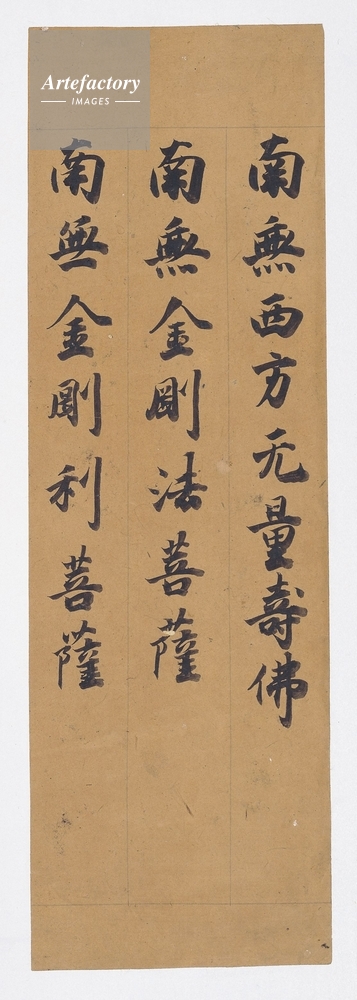 Artefactory
IMAGES
南無西方无量壽佛
南無金剛法菩薩
南無金剛利菩薩